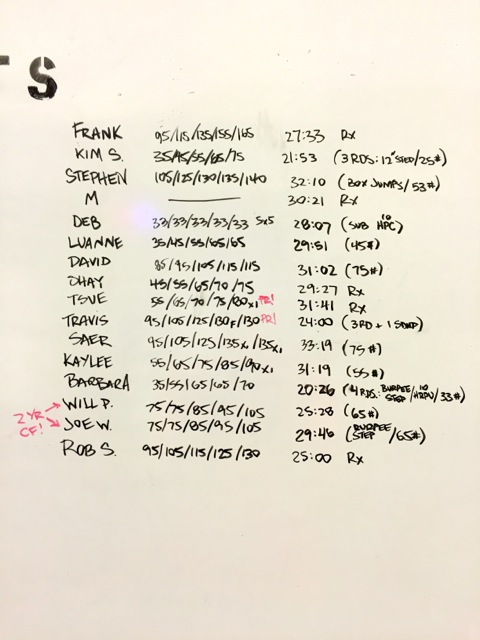 TS
FRANK 95/115/135/155/165 27:33 Rx
KIM S. 35/45/55/65/75 21:53 (3 RDS: 12" STEP/25#)
STEPHEN 105/125/130/135/140 32:10 (BOX JUMPS/53#)
M — 30:21 Rx
DEB 33/33/33/33/33 5x5 28:07 (SUB 10 HPC)
LUANNE 35/45/55/65/65 29:51 (45#)
DAVID 85/95/105/115/115 31:02 (75#)
OHAY 45/55/65/70/75 29:27 Rx
TSUE 55/65/70/75/80x1 PR! 31:41 Rx
TRAVIS 95/105/125/130F/130 PR! 24:00 (3RD + 1
SAER 95/105/125/135x1/135x1 33:19 (75#)
KAYLEE 55/65/75/85/90x1 31:19 (55#)
BARBARA 35/55/65/65/70 20:26 (4 RDS: BURPEE STEP/10 HRPU/33#)
2 YR CF! WILL P. 75/75/85/95/105 25:28 (65#)
JOE W. 75/75/85/95/105 29:46 (BURPEE STEP/65#)
ROB S. 95/105/115/125/130 25:00 Rx